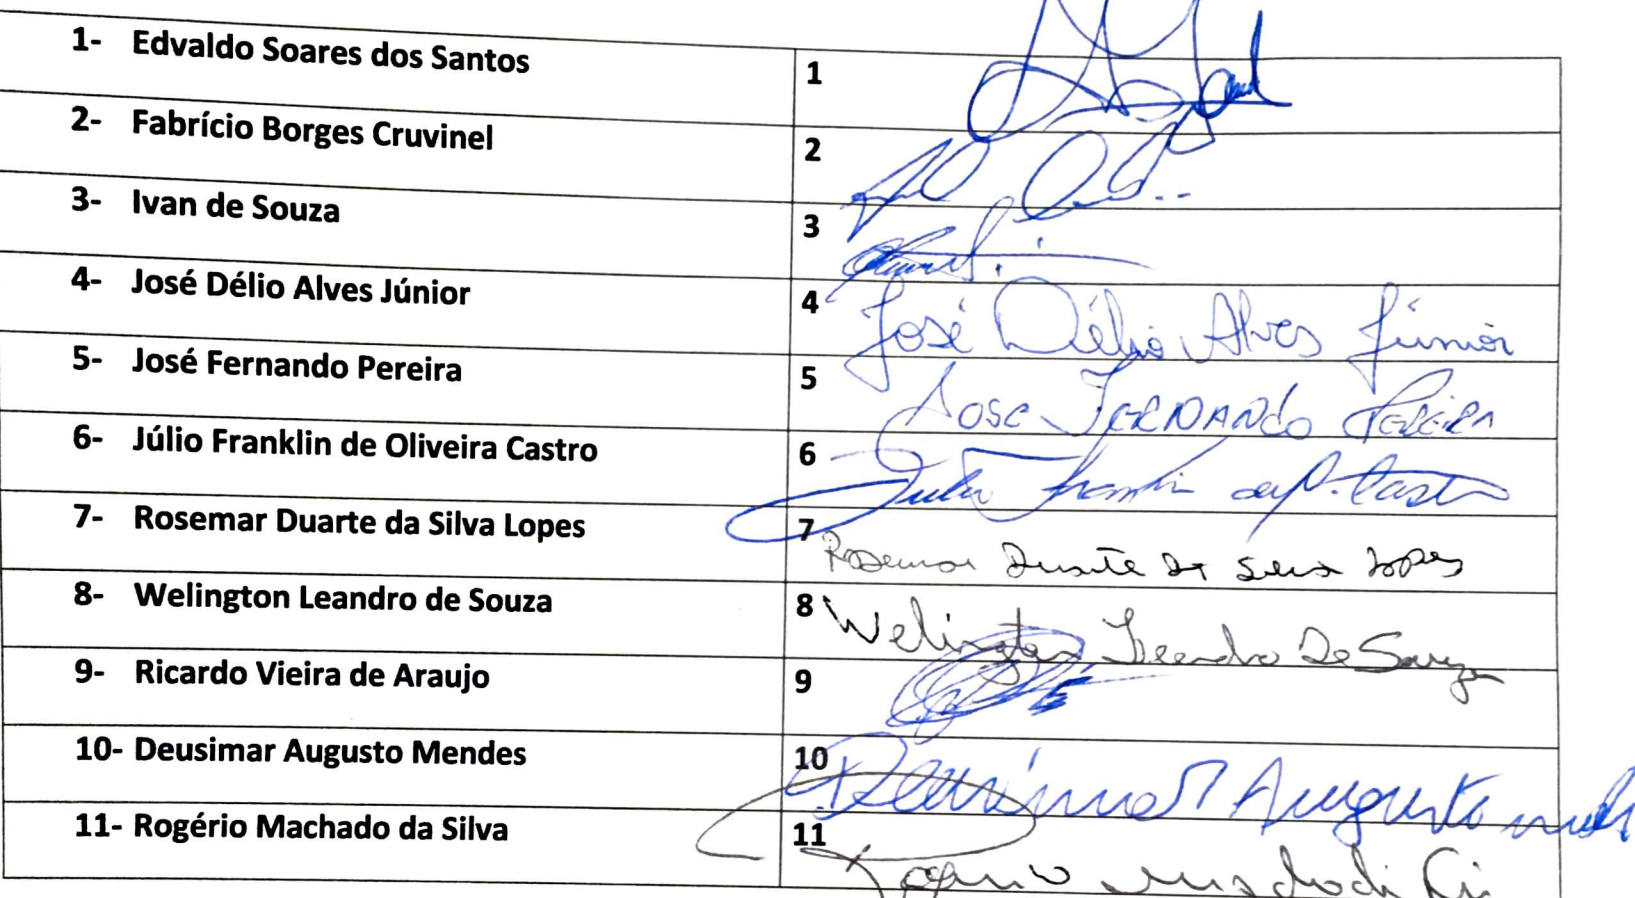 1- Edvaldo Soares dos Santos 1
2- Fabrício Borges Cruvinel 2
3- Ivan de Souza 3
4- José Délio Alves Júnior 4 José Délio Alves Júnior
5- José Fernando Pereira 5 Jose FERNANDO PEREIRA
6- Júlio Franklin de Oliveira Castro 6 Julio Franklin Castro
7- Rosemar Duarte da Silva Lopes 7 Rosemar Duarte da Silva Lopes
8- Welington Leandro de Souza 8 Welington Leandro De Souza
9- Ricardo Vieira de Araujo 9
10- Deusimar Augusto Mendes 10 Deusimar Augusto
11- Rogério Machado da Silva 11 Rogério Machado